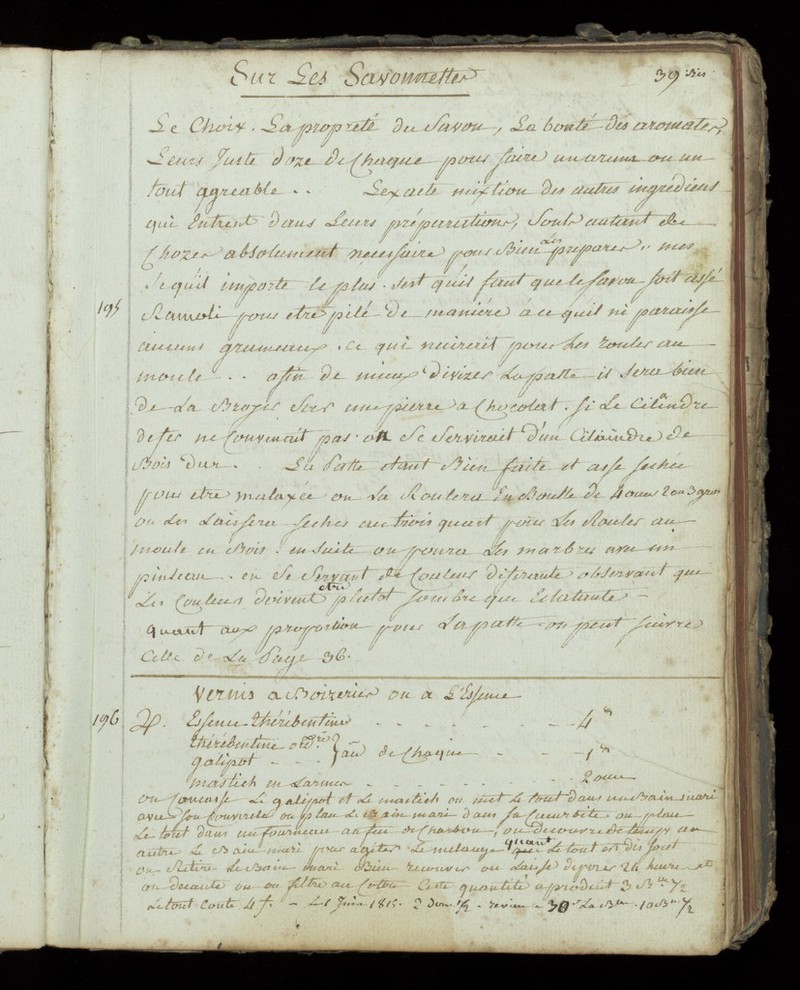 Sur Les Savonnettes 39 bis
Le Choix. La propreté du Savon, La bonté des aromates,
Leurs Juste doze de Chaque pour faire un arume ou un
tout agreable .. Lexacte mixtion des autres ingrediens
qui Entrent dans Leurs préparations, Sont autant de
Chozes absolument necessaire pour Bien Les preparer .. mes
Se qu'il importe le plus. Sest qu'il faut que le Savon soit assé
195 Ramoli pour etre pilé de maniére a ce quil ni paraisse
aucuns grumeaux. ce qui nuirait pour Les rouler au
moule .. afin de mieux divizer La patte il sera bien
de La Broyer Sur une pierre a Chocolat. Si Le Cilindre
de fer ne Convenait pas on Se Servirait d'un Cilaindre de
Bois dur. La Patte étant Bien faite et asse seche
pour etre malaxée on La Roulera En Boulle de 4 onces 2 ou 3 gros
on Les Laissera secher au trois quart pour Les Rouler au
moule en Bois. en suite on poura Les marbrer avec un
pinseau. en Se Servant de Couleur diferante observant que
Les Couleurs doivent etre plutot sombre que Eclatante -
quant aux proportion pour La patte on peut suivre
Celle de La Page 36.
Vernis a Boizeries ou a L'Essence
196 ♃. Essence thérébentine - - - - - 4 ℔
thérébentine ord.re } āā de Chaque - - - 1 ℔
galipot - - -
mastich en Larmes - - - - - - 2 onces
on Concasse Le galipot et Le mastich on met Le tout dans un Bain marie
avec Son Couvercle on place Le Bain marie dans Sa Cucurbite on place
Le tout dans un fourneau au feu de Charbon, on decouvre de temps en
autre Le Bain marie pour agiter Le melange quant Le tout est dissout
on Retire Le Bain marie Bien recouvert on Laisse deposer 24 heures et
on decante ou on filtre au Coton Cette quantité a produit 3 B.lles 1/2
Le tout Coute 4 f. - Le 1 Juin 1815. 1/2 - revien a 30 s La B.lle